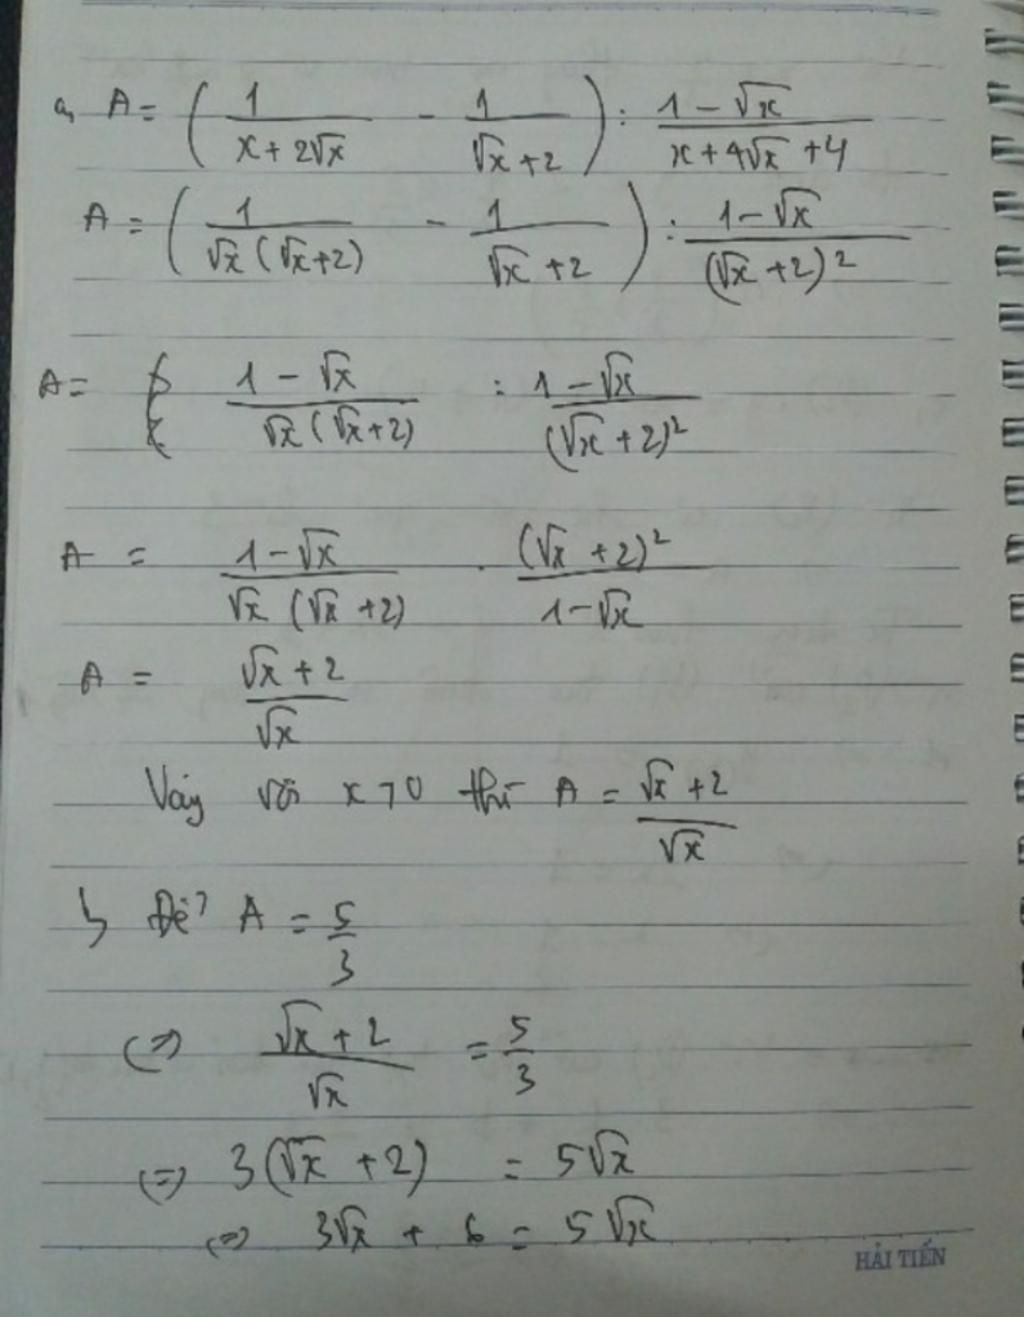 a, A = ( 1/(x + 2√x) - 1/(√x + 2) ) : (1 - √x)/(x + 4√x + 4)
A = ( 1/(√x (√x + 2)) - 1/(√x + 2) ) : (1 - √x)/(√x + 2)²
A = (1 - √x)/(√x (√x + 2)) : (1 - √x)/(√x + 2)²
A = (1 - √x)/(√x (√x + 2)) . (√x + 2)²/(1 - √x)
A = (√x + 2)/√x
Vậy với x > 0 thì A = (√x + 2)/√x
b, Để A = 5/3
(=) (√x + 2)/√x = 5/3
(=) 3(√x + 2) = 5√x
(=) 3√x + 6 = 5√x
HẢI TIẾN